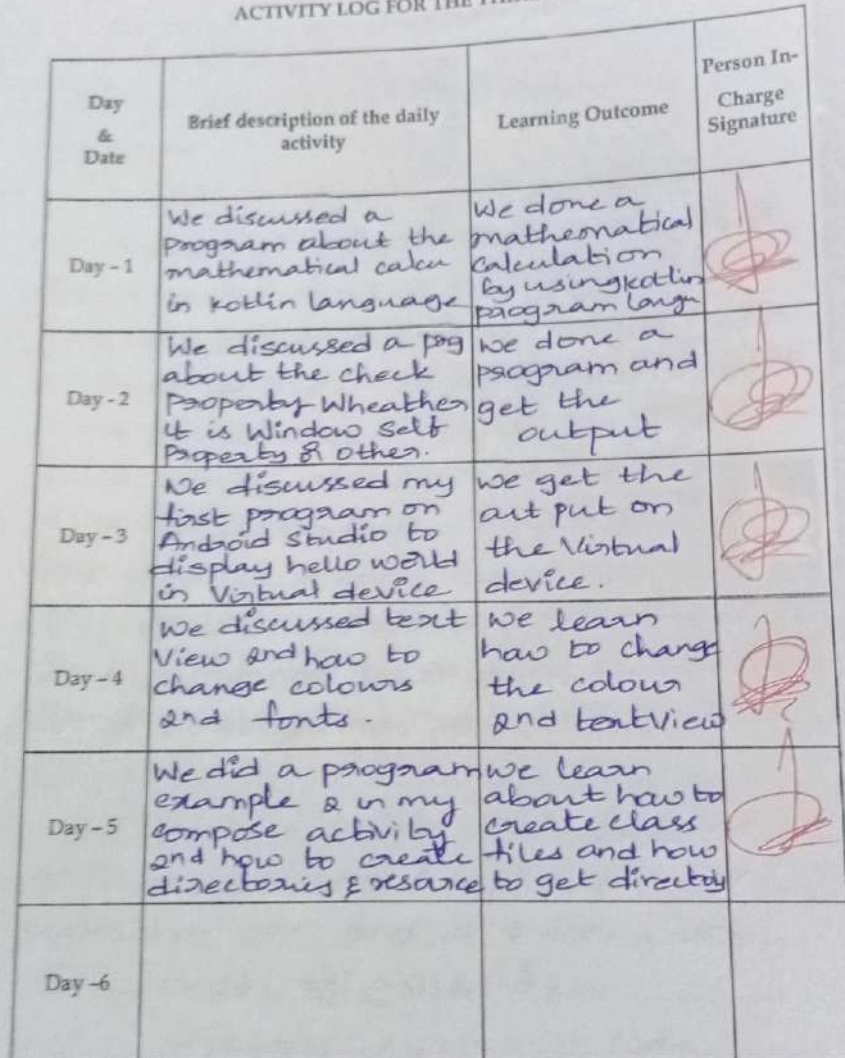 ACTIVITY LOG FOR THE
Day
&
Date
Brief description of the daily
activity
Learning Outcome
Person In-
Charge
Signature
Day - 1
We discussed a
program about the
mathematical calcu
in kotlin language
We done a
mathematical
calculation
by using kotlin
program langu
Day - 2
We discussed a prg
about the check
Property Wheather
it is Window Self
Property & other.
we done a
program and
get the
output
Day - 3
We discussed my
first program on
Android Studio to
display hello world
in Virtual device
we get the
out put on
the Virtual
device.
Day - 4
We discussed text
View and how to
change colours
and fonts.
we learn
how to change
the colour
and textView
Day - 5
We did a program
example 2 in my
compose activity
and how to create
directories & resource
we learn
about how to
create class
files and how
to get directoy
Day -6